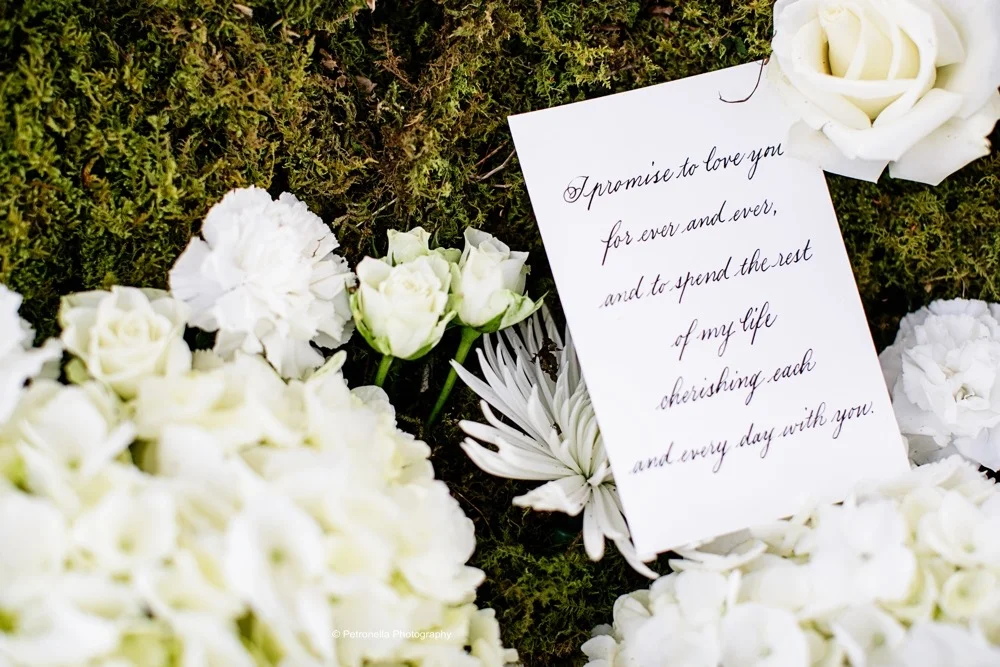 I promise to love you
for ever and ever,
and to spend the rest
of my life
cherishing each
and every day with you.
© Petronella Photography